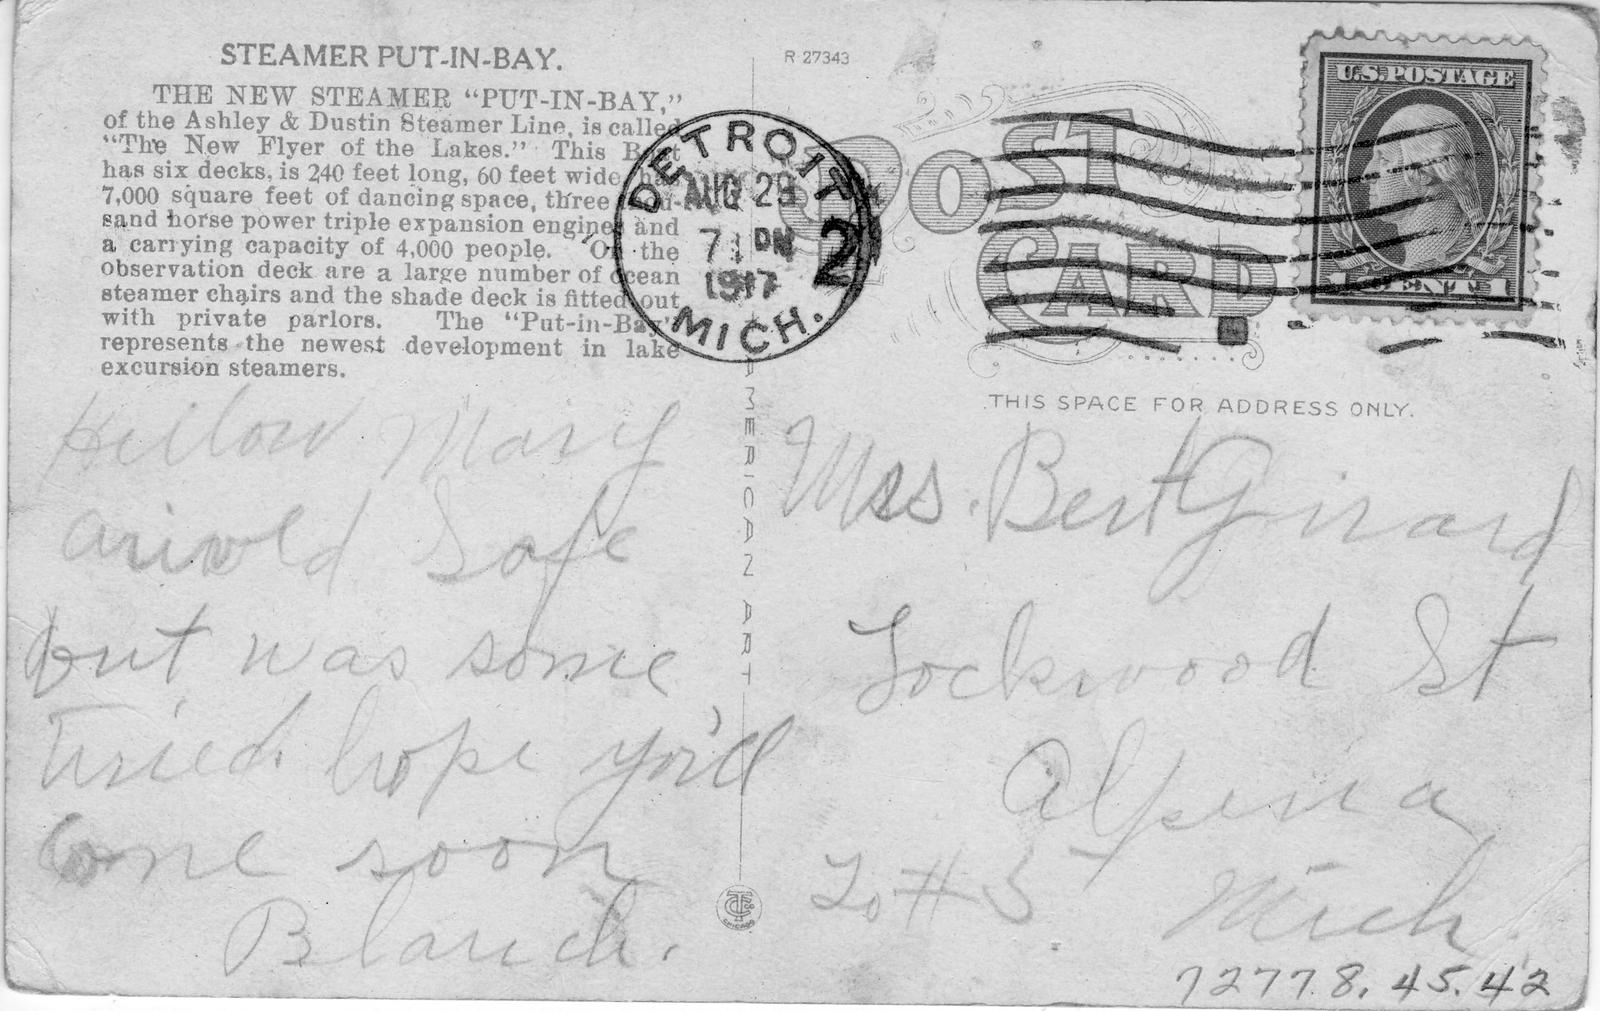 STEAMER PUT-IN-BAY.
THE NEW STEAMER "PUT-IN-BAY,"
of the Ashley & Dustin Steamer Line, is called
"The New Flyer of the Lakes." This B t
has six decks, is 240 feet long, 60 feet wide,
7,000 square feet of dancing space, three
sand horse power triple expansion engines and
a carrying capacity of 4,000 people. On the
observation deck are a large number of ocean
steamer chairs and the shade deck is fitted out
with private parlors. The "Put-in-Bay"
represents the newest development in lake
excursion steamers.
R 27343
DETROIT
AUG 29
7 PM
1917
MICH.
2
POST
CARD
U.S. POSTAGE
1 CENT 1
THIS SPACE FOR ADDRESS ONLY.
AMERICAN ART
CHICAGO
Hellow Mary
arived Safe
but was some
Tried. hope yo'll
come soon
Blanch.
Mss. Bert Girard
Lockwood St
Alpena
Lo # 5 Mich.
72778.45.42